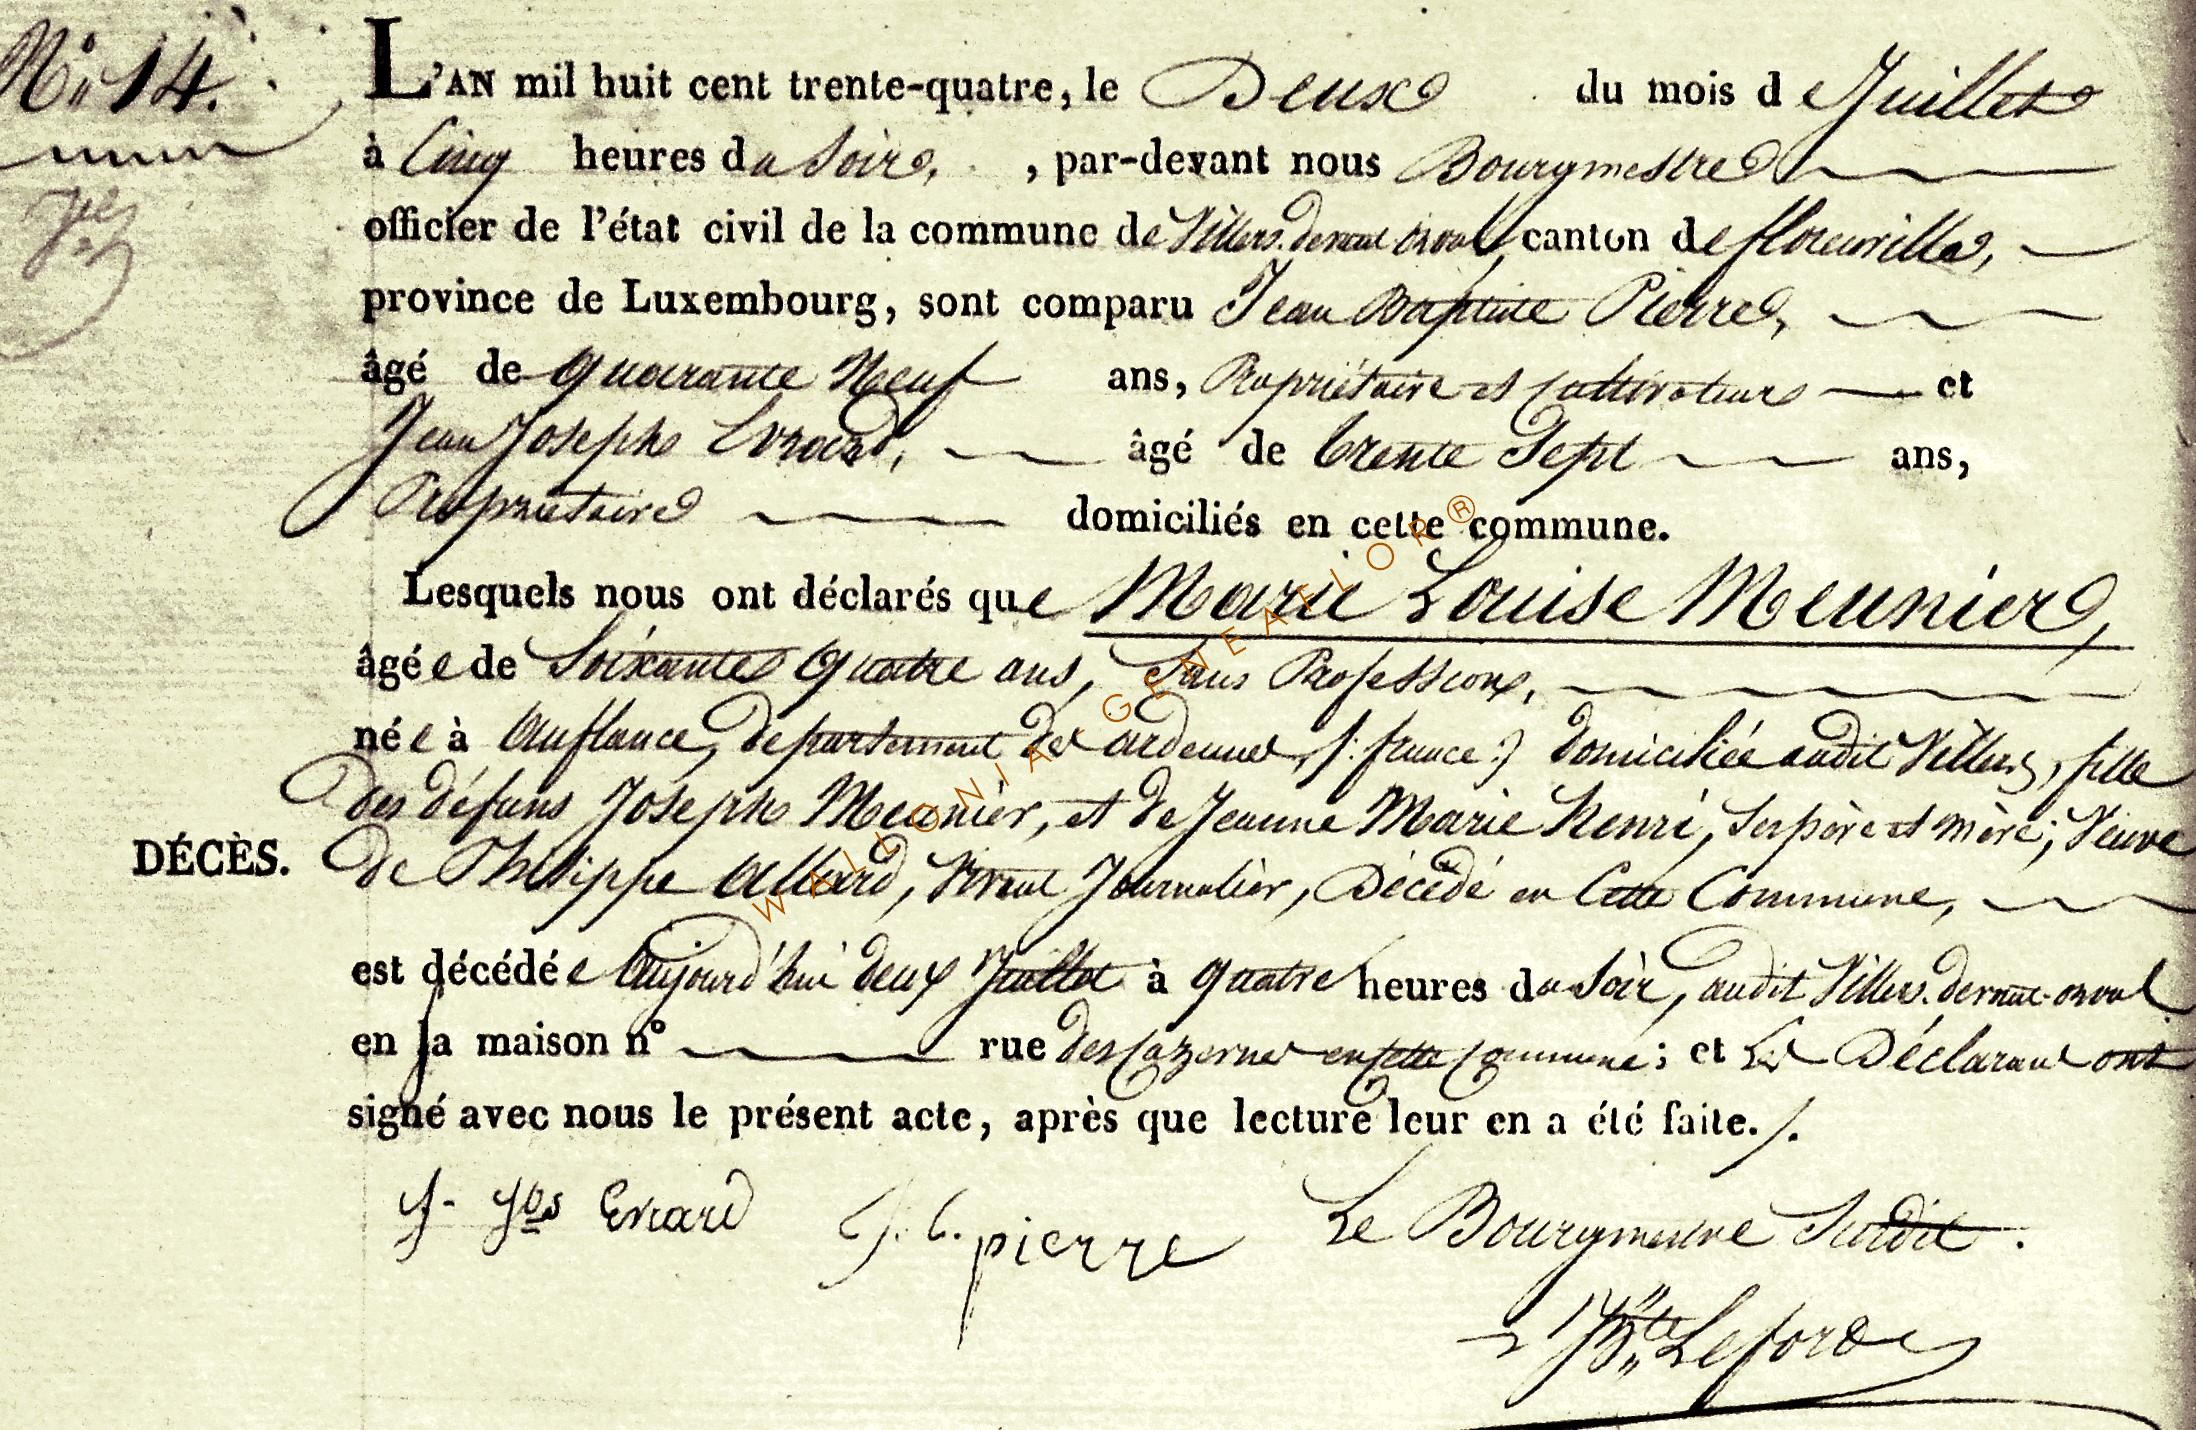 N° 14.
L'AN mil huit cent trente-quatre, le Deux du mois de Juillet
à Cinq heures du Soir, , par-devant nous Bourgmestre
officier de l'état civil de la commune de Villers-devant-orval, canton de florenville,
province de Luxembourg, sont comparu Jean Baptiste Pierre,
âgé de quarante Neuf ans, Propriétaire et Cultivateur et
Jean Joseph Evrard, âgé de trente Sept ans,
Propriétaire domiciliés en cette commune.
Lesquels nous ont déclarés que Marie Louise Meunier,
âgée de Soixante Quatre ans, Sans Profession,
née à Auflance, departement des ardennes, /: france :/ domiciliée audit Villers, fille
des défuns Joseph Meunier, et de Jeanne Marie Henri, ses père et mère; Veuve
DÉCÈS. de Philippe Allard, Vivant Journalier, Décédé en Cette Commune,
est décédée Aujourd'hui deux Juillet à quatre heures du Soir, audit Villers-devant-orval
en sa maison n° rue des Cazernes en cette Commune; et Les Déclarans ont
signé avec nous le présent acte, après que lecture leur en a été faite./.
J- Jos Evrard J. b. pierre Le Bourgmestre Susdit.
JBte Leforde
WALLONIA-GENEALOR®